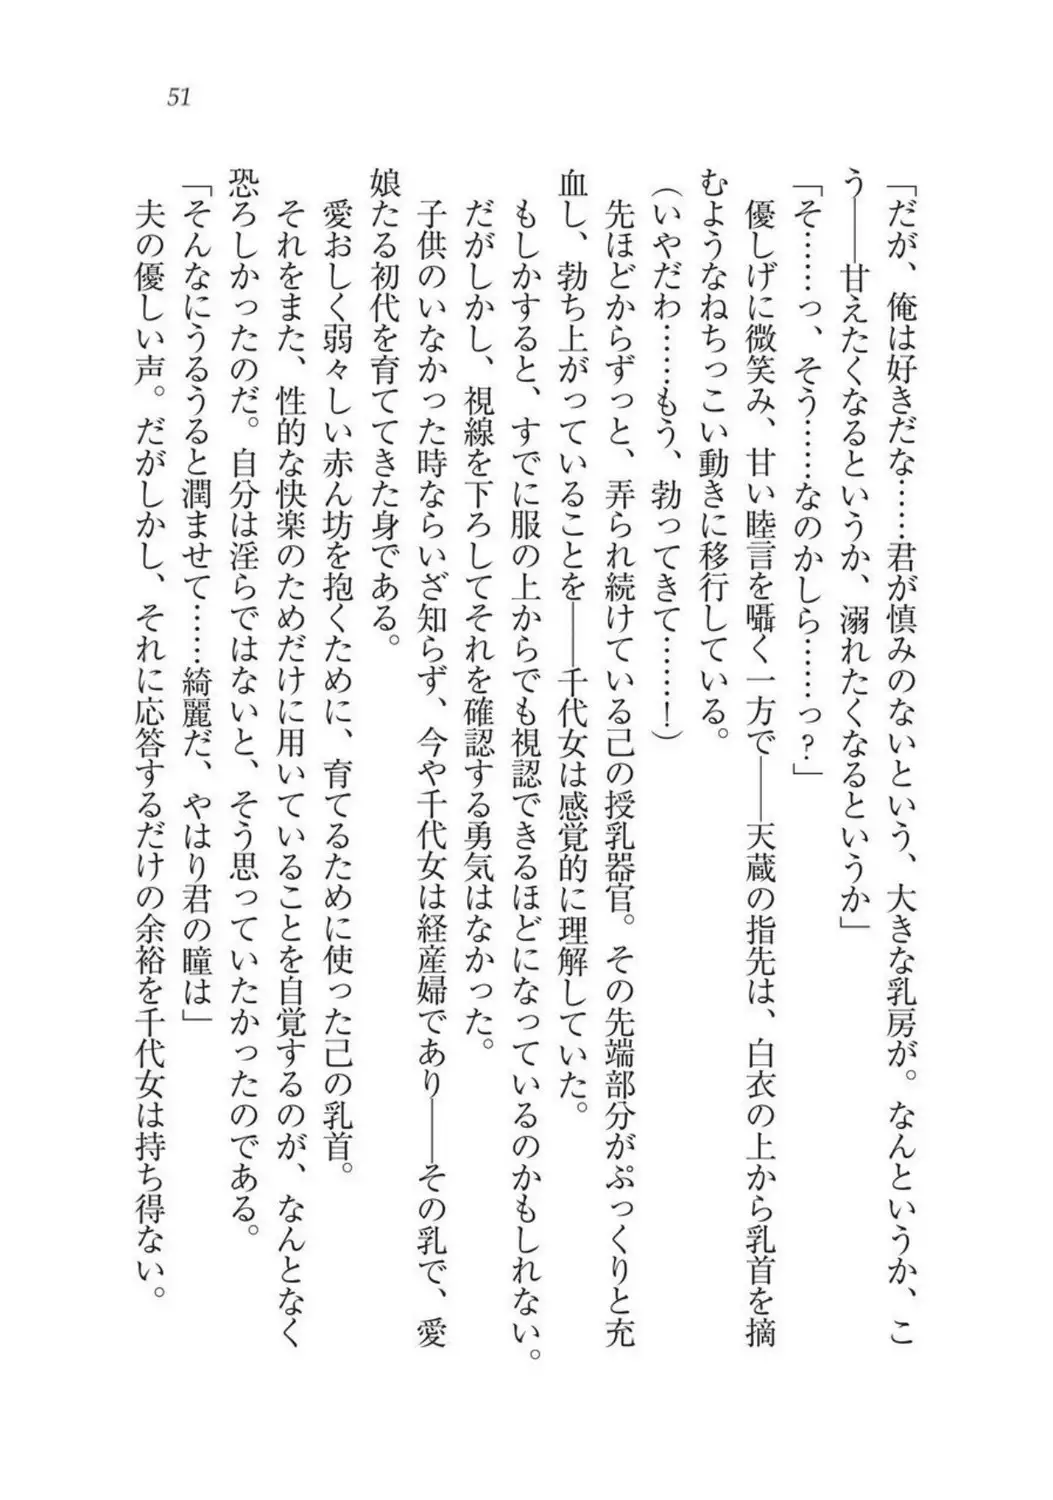 51
「だが、俺は好きだな……君が慎みのないという、大きな乳房が。なんというか、こ
う――甘えたくなるというか、溺れたくなるというか」
「そ……っ、そう……なのかしら……っ？」
　優しげに微笑み、甘い睦言を囁く一方で――天蔵の指先は、白衣の上から乳首を摘
むようなねちっこい動きに移行している。
（いやだわ……もう、勃ってきて……！）
　先ほどからずっと、弄られ続けている己の授乳器官。その先端部分がぷっくりと充
血し、勃ち上がっていることを――千代女は感覚的に理解していた。
　もしかすると、すでに服の上からでも視認できるほどになっているのかもしれない。
　だがしかし、視線を下ろしてそれを確認する勇気はなかった。
　子供のいなかった時ならいざ知らず、今や千代女は経産婦であり――その乳で、愛
娘たる初代を育ててきた身である。
　愛おしく弱々しい赤ん坊を抱くために、育てるために使った己の乳首。
　それをまた、性的な快楽のためだけに用いていることを自覚するのが、なんとなく
恐ろしかったのだ。自分は淫らではないと、そう思っていたかったのである。
「そんなにうるうると潤ませて……綺麗だ、やはり君の瞳は」
　夫の優しい声。だがしかし、それに応答するだけの余裕を千代女は持ち得ない。